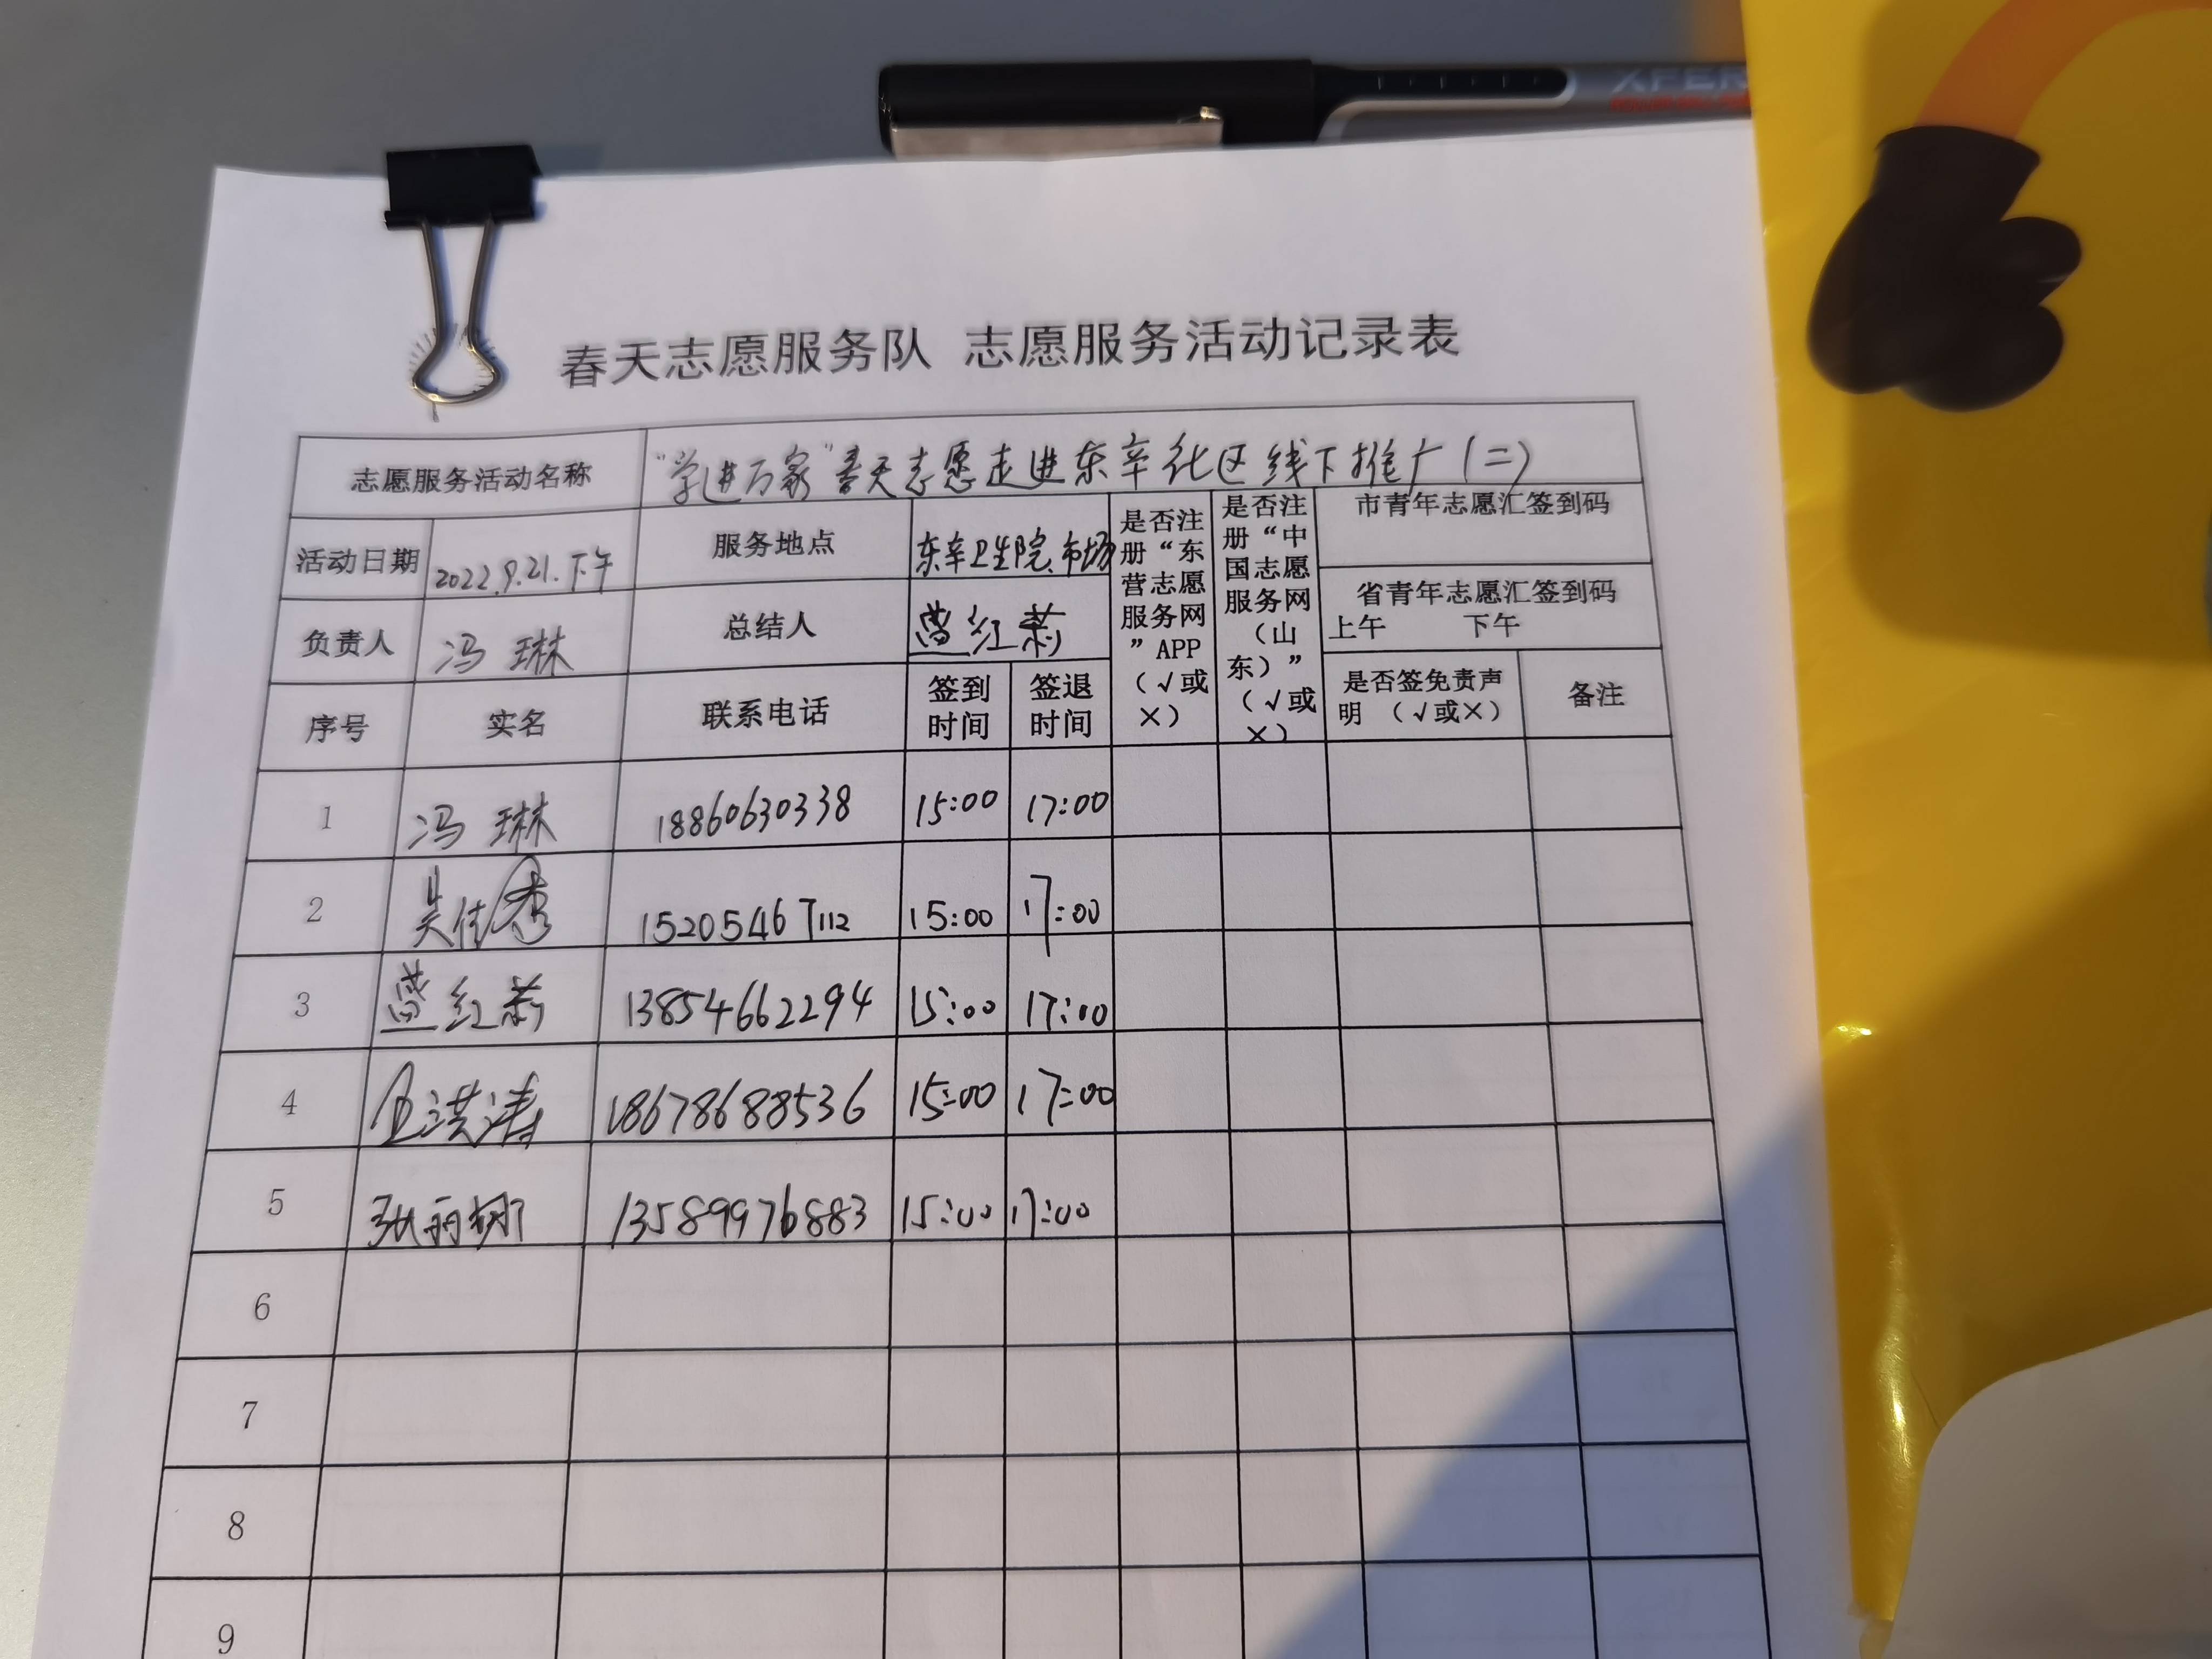 XFEN
春天志愿服务队 志愿服务活动记录表
志愿服务活动名称 "学进万家"春天志愿走进东辛社区线下推广(二)
活动日期 2022.9.21.下午 服务地点 东辛卫生院、市场
负责人 冯琳 总结人 红莉
是否注册“东营志愿服务网”APP（√或×）
是否注册“中国志愿服务网（山东）”（√或×）
市青年志愿汇签到码
省青年志愿汇签到码
上午 下午
序号 实名 联系电话 签到时间 签退时间 是否签免责声明 （√或×） 备注
1 冯琳 18860630338 15:00 17:00
2 吴佳秀 15205467112 15:00 17:00
3 红莉 13854662294 15:00 17:00
4 洪涛 18678688536 15:00 17:00
5 张丽娜 13589976883 15:00 17:00
6
7
8
9